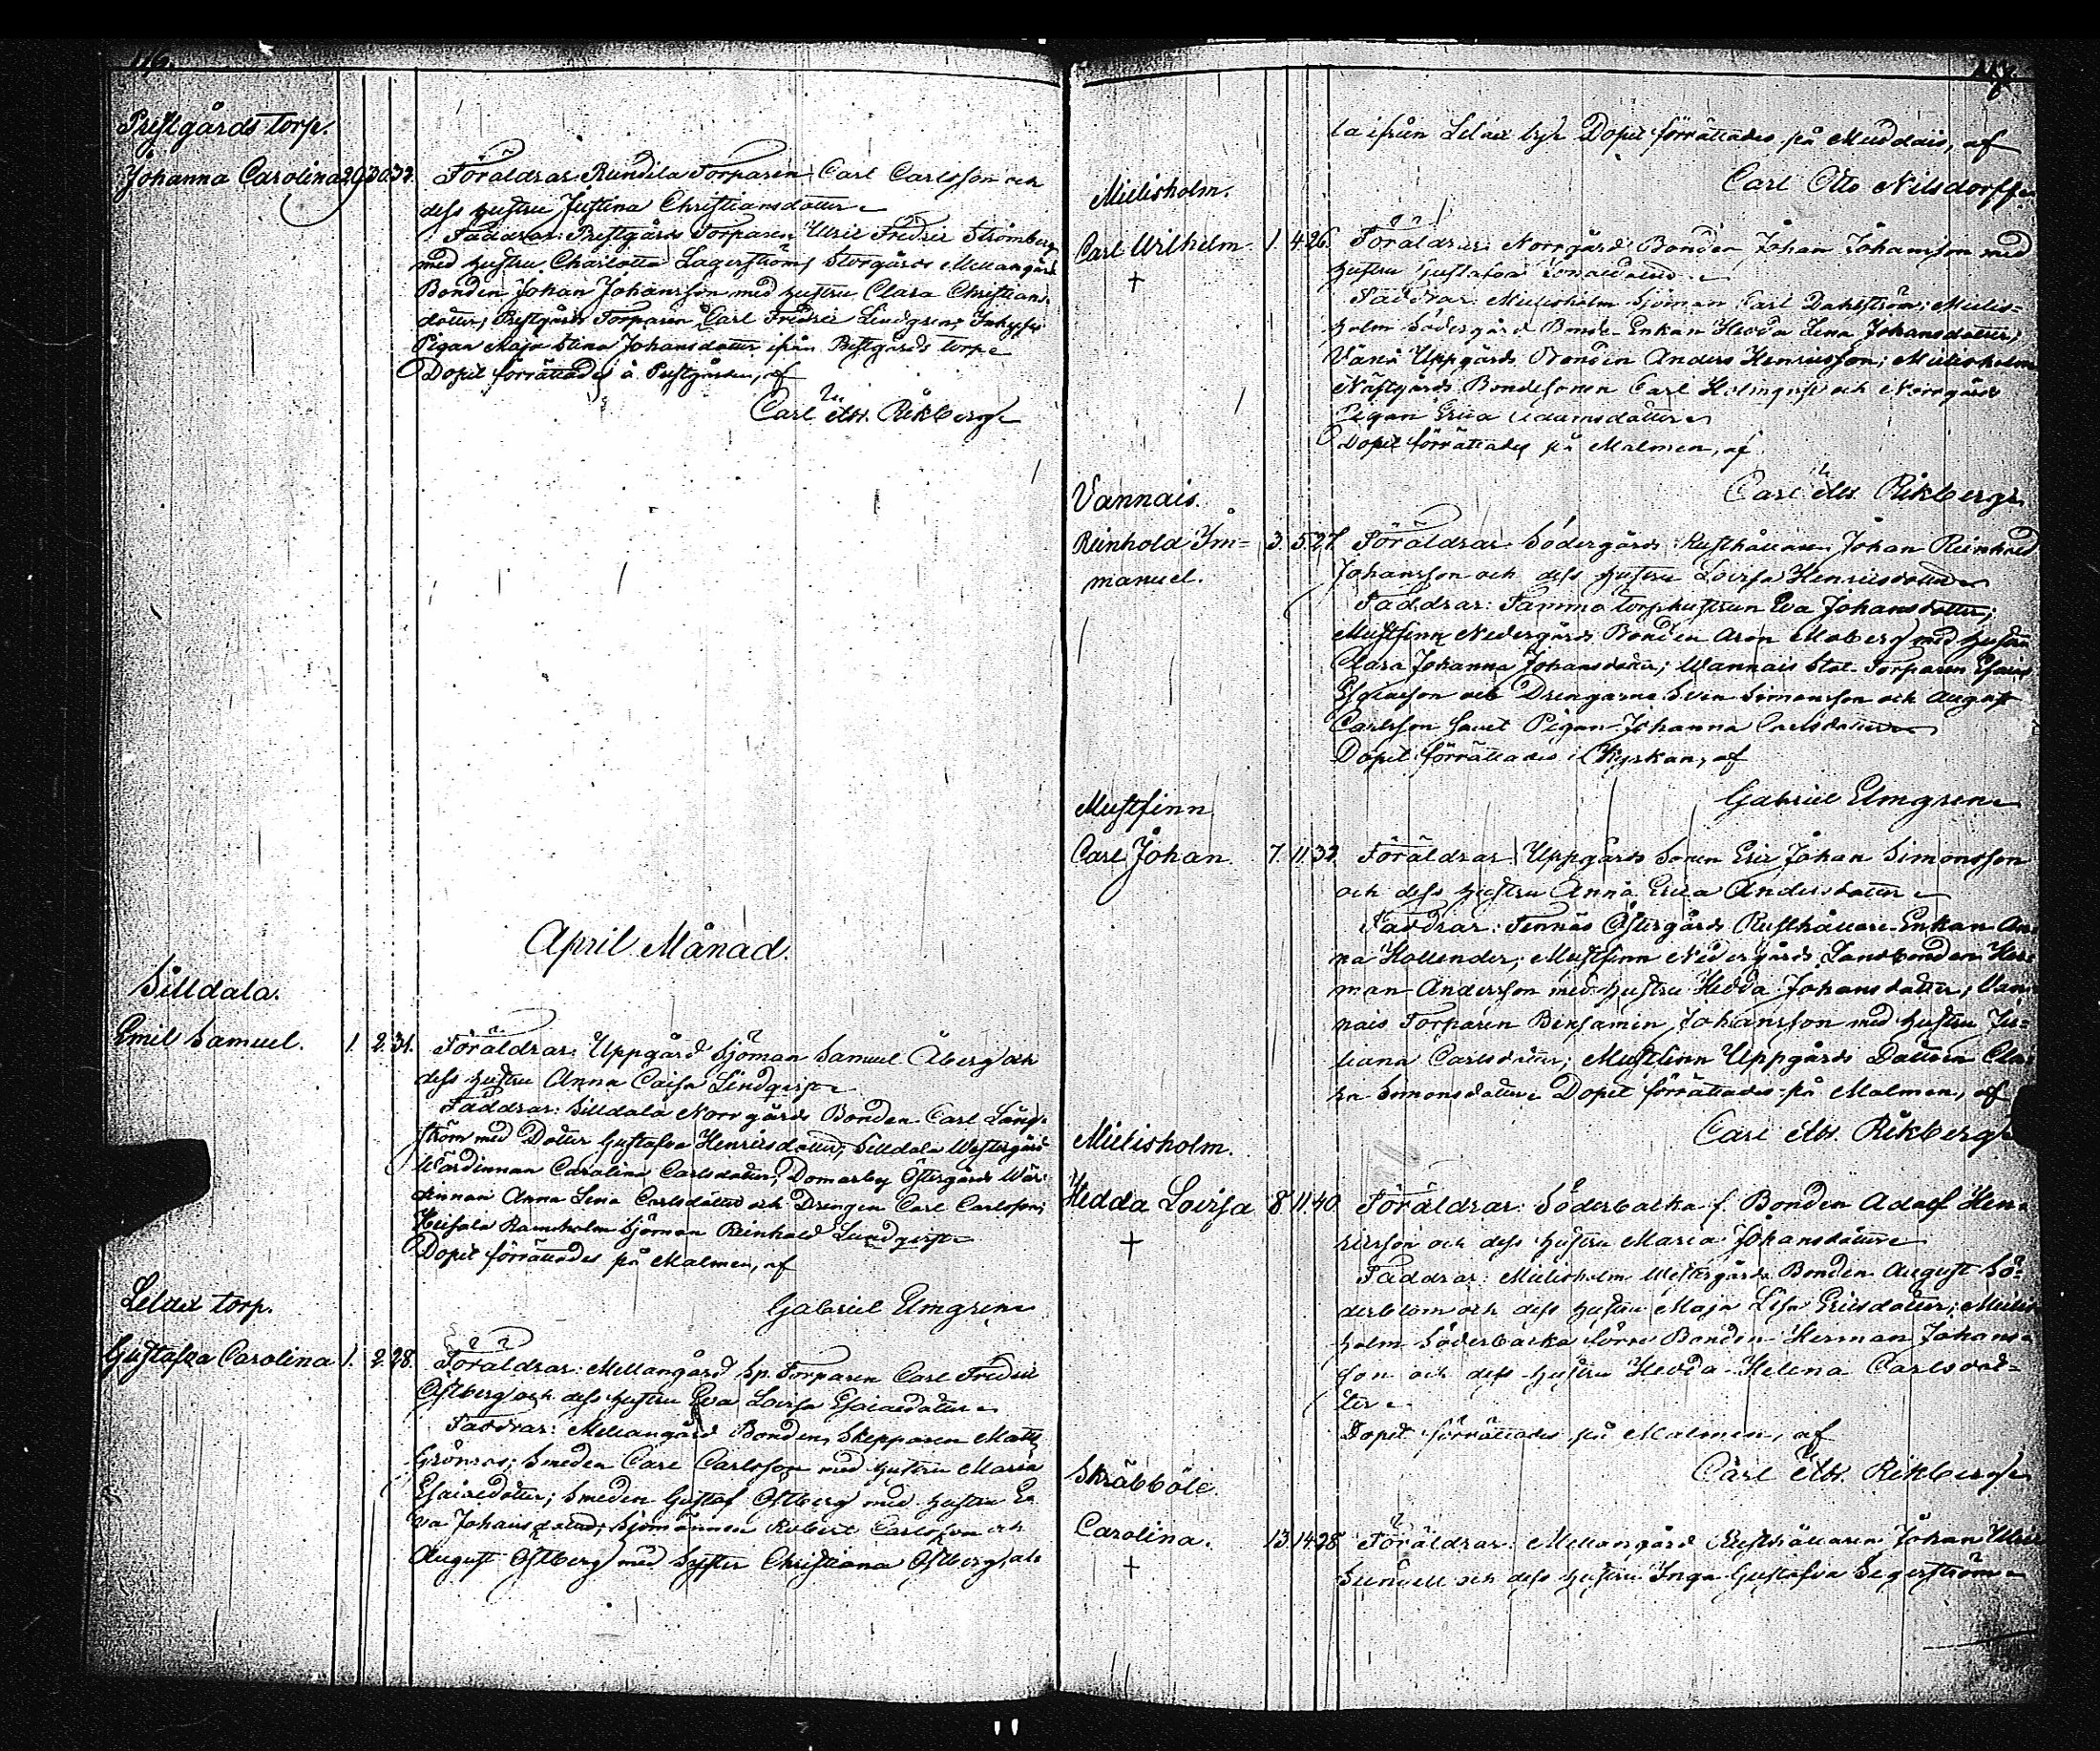 116.
Prestgårds torp.
Johanna Carolina 29 30. 37. Föräldrar: Rundila Torparen Carl Carlsson och
dess hustru Justina Christiansdotter
Faddrar: Prestgårds Torparen Ulric Fredric Strömberg
med hustru Charlotta Lagerström; Storgårds Mellangårds
Bonden Johan Johansson med hustru Clara Christians-
dotter; Prestgårds Torparen Carl Fredric Lindgren; Inhyses
Pigan Maja Stina Johansdotter ifrån Prestgårds torp
Dopet förrättades å Prestgården, af
Carl Alb. Rikberg
April Månad.
Silldala.
Emil Samuel. 1. 2. 31. Föräldrar: Uppgård Sjöman Samuel Åberg och
dess hustru Anna Caisa Lindqvist
Faddrar: Silldala Norrgårds Bonden Carl Lång-
ström med Dotter Gustafva Henricsdotter; Silldala Westergård
Wärdinnan Carolina Carlsdotter; Domarby Östergårds Wär-
dinnan Anna Lena Carlsdotter och Drengen Carl Carlsson;
Heisala Ramsholm Sjöman Reinhold Lundqvist
Dopet förrättades på Malmen, af
Gabriel Elmgren
Lilax torp.
Gustafva Carolina 1. 2. 28. Föräldrar: Mellangård Sp. Torparen Carl Fredric
Östberg och dess hustru Eva Lovisa Esaiaedotter
Faddrar: Mellangård Bonden, Skepparen Matts
Grönroos; Smeden Carl Carlsson med hustru Maria
Esaiaedotter; Smeden Gustaf Östberg med hustru E-
va Johansdotter; Sjömännen Robert Carlsson och
August Östberg med Syster Christiana Östberg, al-
117.
la ifrån Lilax by. Dopet förrättades på Muddais, af
Carl Otto Nilsdorff
Mielisholm.
Carl Wilhelm. 1. 4. 26. Föräldrar: Norrgård Bonden Johan Johansson med
hustru Gustafva
Faddrar: Mielisholm Sjöman Carl Dahlström; Mielis-
holm Södergård Bonde-Enkan Hedda Lena Johansdotter;
Vänä Uppgårds Bonden Anders Henricsson; Mielisholm
Nästgårds Bondesonen Carl Holmqvist och Norrgårds
Pigan Erica Adamsdotter
Dopet förrättades på Malmen, af
Carl Alb. Rikberg
Vannais.
Reinhold Im- 3. 5. 27. Föräldrar: Södergårds Rusthållaren Johan Reinhold
manuel. Johansson och dess hustru Lovisa Henricsdotter
Faddrar: Tammo torphustrun Eva Johansdotter;
Mustfinn Nedergårds Bonden Aron Moberg med hustru
Clara Johanna Johansdotter; Wannais Stat-Torparen Esaias
Esaiaeson och Drengarne Sven Simonsson och August
Carlsson samt Pigan Johanna Carlsdotter
Dopet förrättades i Kyrkan, af
Gabriel Elmgren
Mustfinn
Carl Johan. 7. 11. 32. Föräldrar: Uppgårds Sonen Eric Johan Simonsson
och dess hustru Anna Erica Andersdotter
Faddrar: Tennäs Östergårds Rusthållare-Enkan An-
na Hollender; Mustfinn Nedergårds Landbonden Her-
man Andersson med hustru Hedda Johansdotter; Van-
nais Torparen Benjamin Johansson med hustru Ju-
liana Carlsdotter; Mustfinn Uppgårds Dottern Cla-
ra Simonsdotter. Dopet förrättades på Malmen, af
Carl Alb. Rikberg
Mielisholm.
Hedda Lovisa 8 11. 40. Föräldrar: Söderbacka f. Bonden Adolf Hen-
ricsson och dess hustru Maria Johansdotter
Faddrar: Mielisholm Westergårds Bonden August Sö-
derblom och dess hustru Maja Lisa Ericsdotter; Mielis-
holm Söderbacka förre Bonden Herman Johans-
son och dess hustru Hedda Helena Carlsdot-
ter
Dopet förrättades på Malmen, af
Carl Alb. Rikberg
Skräbböle.
Carolina. 13. 14. 28. Föräldrar: Mellangård Rusthållaren Johan Ulric
Sundell och dess hustru Inga Gustafva Segerström